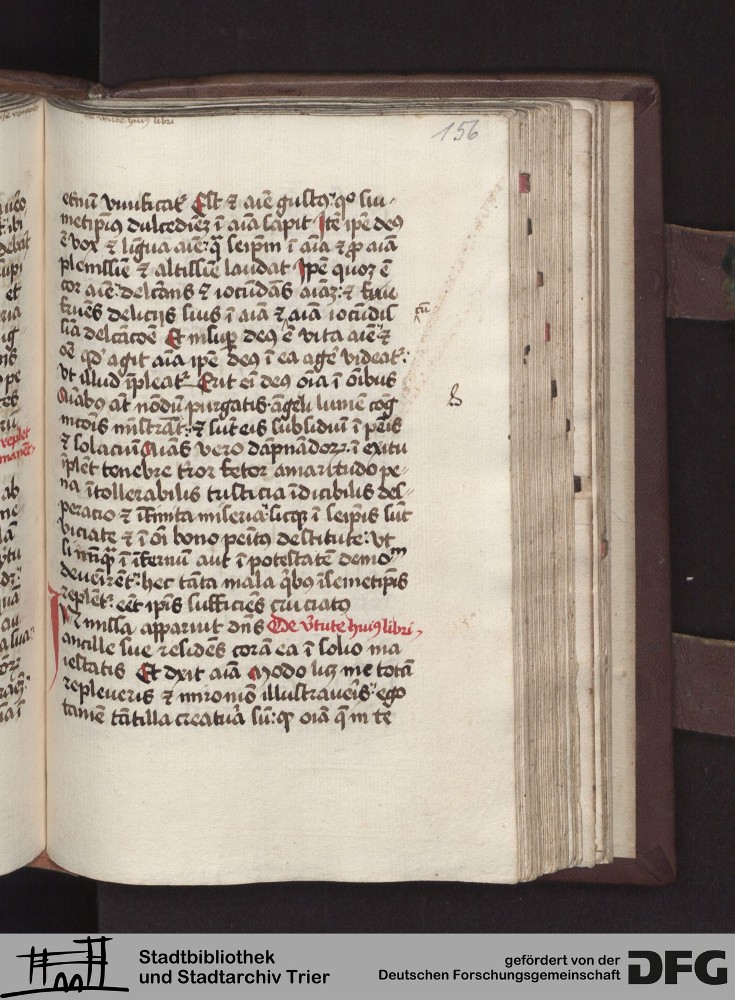 156
et̄nū viuificat᷑ Est ⁊ aīe gustꝰ qͦ sui-
metip̄iꝰ dulcediēꝫ ī aīa sapit Itē ip̄e deꝰ
ē vox ⁊ lingua aīe q̄ seip̄m ī aīa ⁊ ꝓ aīa
plenissīe ⁊ altissīe laudat Ip̄e quoꝫ ē
cor aīe delc̄ans ⁊ iocūdās aīaꝫ ⁊
fruēs delicijs suis ī aīa ⁊ aīa iocūdis
sīa delc̄acōe Et insuꝑ deꝰ ē vita aīe ⁊
oē qd̓ agit aīa ip̄e deꝰ ī ea age᷑ videat᷑
Vt illud īpleat᷑ Erit eī deus oīa ī oībus
Aīabꝰ aūt nōdū purgatis angeli lumē cog
mīst̄rāt ⁊ sūt eis subsidiū ī penis
⁊ solaciū Aīas vero dāpnādoꝝ ī exitu
īplēt tenebre t̄ror fetor amaritudo pe-
na ītollerabilis tristicia īdicibilis des-
peracio ⁊ īfinita miseria sicqꝫ ī seip̄is sūt
viciate ⁊ ī oī bono penitꝰ destitute Vt
si nūq̄ ī īfernū aut ī potestatē demoᵐ
deuenirēt hec tāta mala qͥbꝰ ī semetip̄is
replent᷑ eēt ip̄is sufficiēs cruciatꝰ
In missa apparuit dn̄s De v̓tute huiꝰ libri
ancille sue residēs corā ea ī solio ma
iestatis Et dixit aīa Modo licꝫ me totā
repleueris ⁊ illustraueris ego
tamē tātilla creatura sū qꝫ oīa q̄ in te
Stadtbibliothek
und Stadtarchiv Trier
gefördert von der
Deutschen Forschungsgemeinschaft
DFG